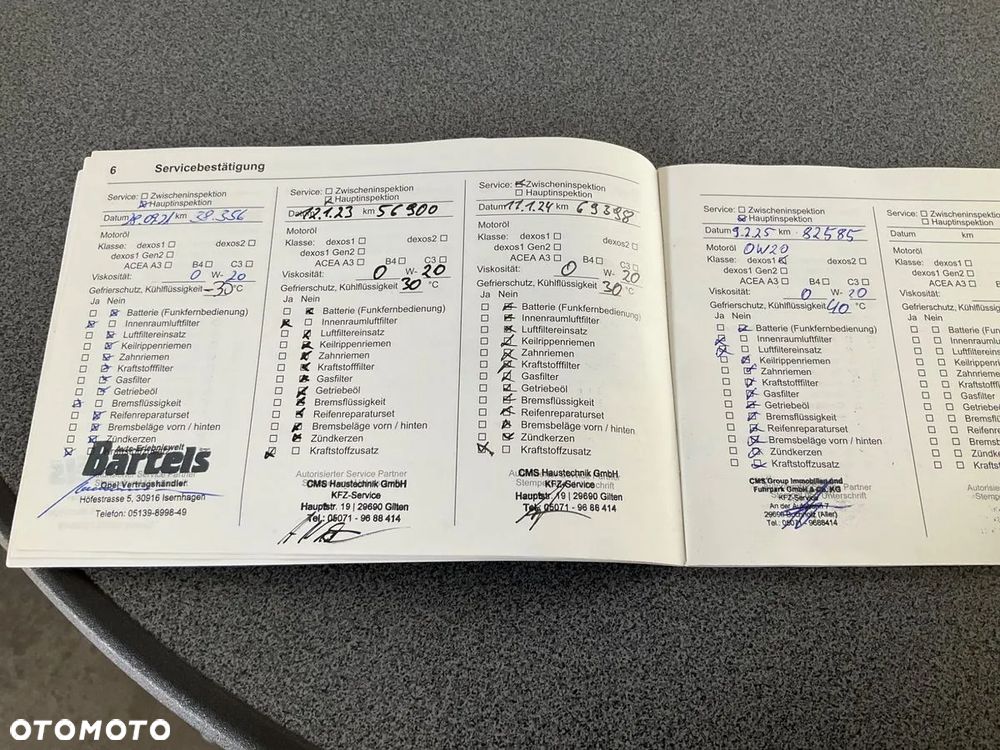 6 Servicebestätigung
Service: Zwischeninspektion
Hauptinspektion
Datum km 28.356
Motoröl
Klasse: dexos1 dexos2
dexos1 Gen2
ACEA A3 B4 C3
Viskosität: 0 W-20
Gefrierschutz, Kühlflüssigkeit -30 °C
Ja Nein
Batterie (Funkfernbedienung)
Innenraumluftfilter
Luftfiltereinsatz
Keilrippenriemen
Zahnriemen
Kraftstofffilter
Gasfilter
Getriebeöl
Bremsflüssigkeit
Reifenreparaturset
Bremsbeläge vorn / hinten
Zündkerzen
Auto-Erlebniswelt
Barcels
Opel Vertragshändler
Höfestrasse 5, 30916 Isernhagen
Telefon: 05139-8998-49
Service: Zwischeninspektion
Hauptinspektion
12.1.23 km 56900
Motoröl
Klasse: dexos1 dexos2
dexos1 Gen2
ACEA A3 B4 C3
Viskosität: 0 W-20
Gefrierschutz, Kühlflüssigkeit 30 °C
Ja Nein
Batterie (Funkfernbedienung)
Innenraumluftfilter
Luftfiltereinsatz
Keilrippenriemen
Zahnriemen
Kraftstofffilter
Gasfilter
Getriebeöl
Bremsflüssigkeit
Reifenreparaturset
Bremsbeläge vorn / hinten
Zündkerzen
Kraftstoffzusatz
Autorisierter Service Partner
CMS Haustechnik GmbH
KFZ-Service
Hauptstr. 19 | 29690 Gilten
Tel.: 05071 - 96 88 414
Service: Zwischeninspektion
Hauptinspektion
Datum 11.1.24 km 69398
Motoröl
Klasse: dexos1 dexos2
dexos1 Gen2
ACEA A3 B4 C3
Viskosität: 0 W-20
Gefrierschutz, Kühlflüssigkeit 30 °C
Ja Nein
Batterie (Funkfernbedienung)
Innenraumluftfilter
Luftfiltereinsatz
Keilrippenriemen
Zahnriemen
Kraftstofffilter
Gasfilter
Getriebeöl
Bremsflüssigkeit
Reifenreparaturset
Bremsbeläge vorn / hinten
Zündkerzen
Kraftstoffzusatz
CMS Haustechnik GmbH
KFZ-Service
Hauptstr. 19 | 29690 Gilten
Tel.: 05071 - 96 88 414
Service: Zwischeninspektion
Hauptinspektion
Datum 9.2.25 km 82585
Motoröl 0W20
Klasse: dexos1 dexos2
dexos1 Gen2
ACEA A3 B4 C3
Viskosität: 0 W-20
Gefrierschutz, Kühlflüssigkeit 40 °C
Ja Nein
Batterie (Funkfernbedienung)
Innenraumluftfilter
Luftfiltereinsatz
Keilrippenriemen
Zahnriemen
Kraftstofffilter
Gasfilter
Getriebeöl
Bremsflüssigkeit
Reifenreparaturset
Bremsbeläge vorn / hinten
Zündkerzen
Kraftstoffzusatz
CMS Group Immobilien und
Fuhrpark GmbH & Co. KG
KFZ-Service
Tel.: 05071 - 9688414
Service: Zwischeninspektion
Hauptinspektion
Datum km
Motoröl
Klasse: dexos1
dexos1 Gen2
ACEA A3
Viskosität:
Gefrierschutz, Kühlflüssig
Ja Nein
Batterie (F
Innenraum
Luftfilter
Keilrippen
Zahnriemen
Kraftstoff
Gasfilter
Getriebeöl
Bremsflüssi
Reifenrep
Bremsbel
Zündkerze
Kraftstoff
Autorisie
Stempe
OTOMOTO